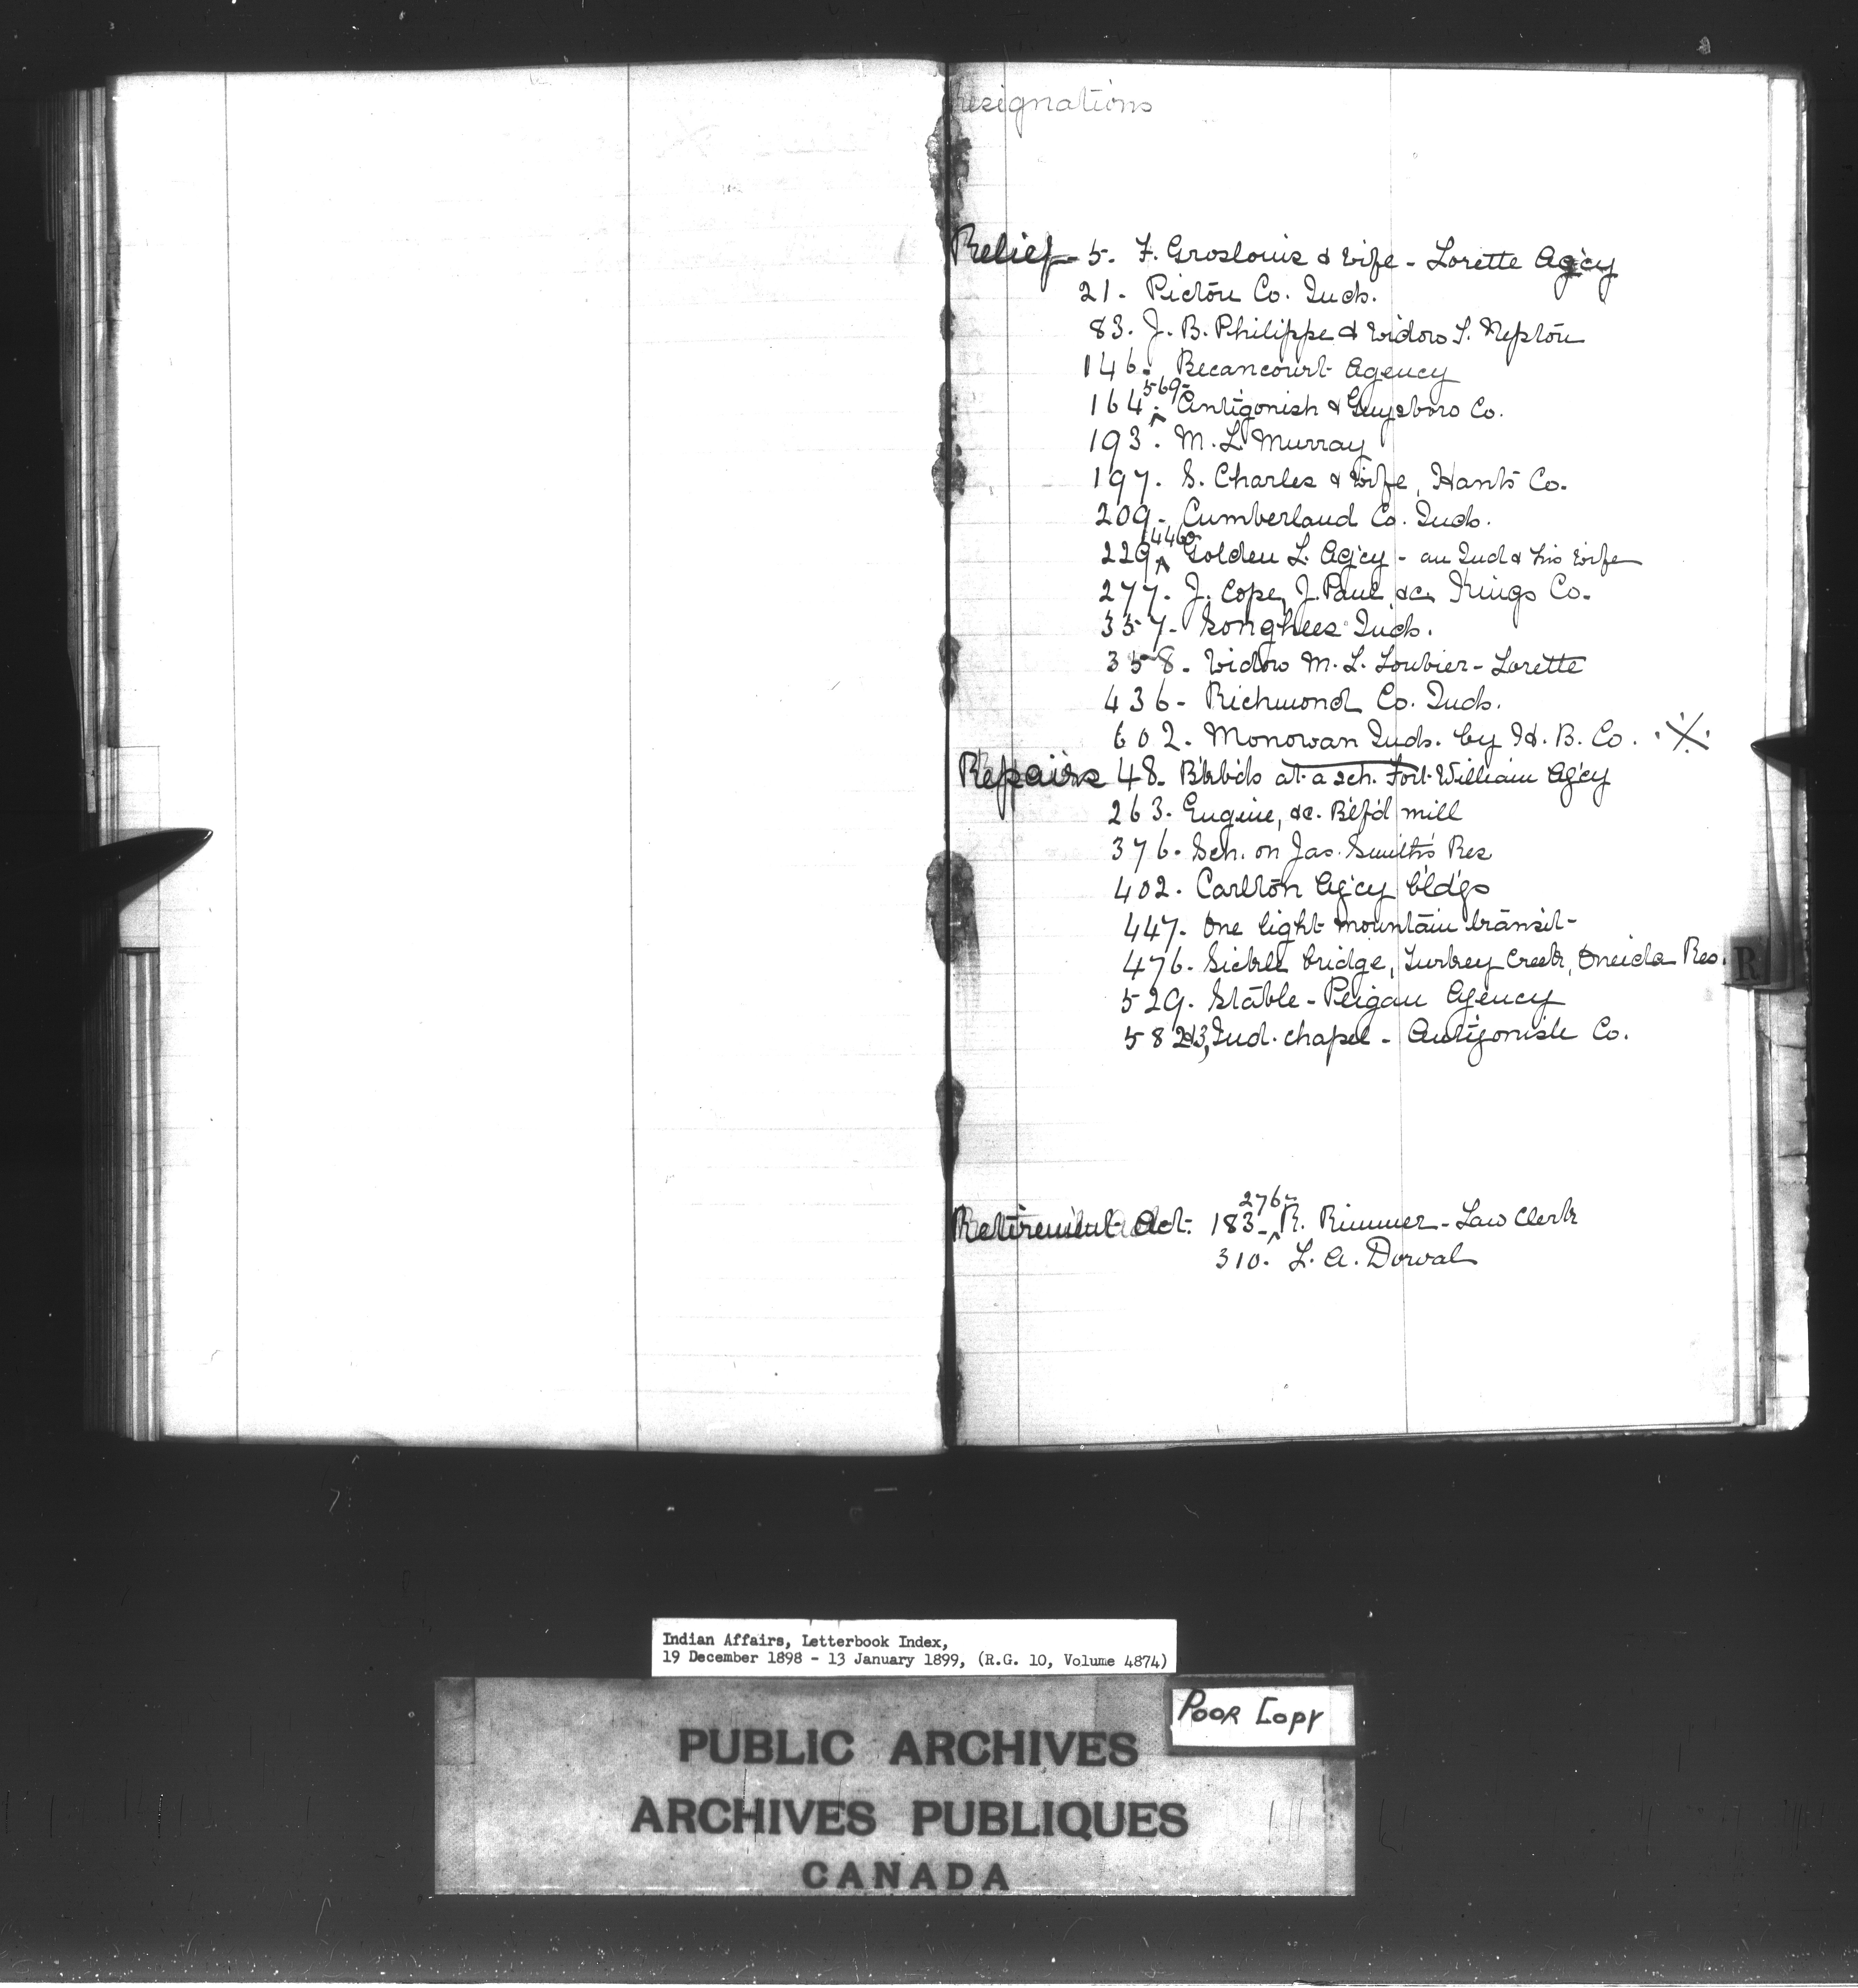 Resignations
Relief - 5. F. Groslouis & wife - Lorette Ag'cy
21 - Pictou Co. Inds.
83. J. B. Philippe & widow S. Neptou
146. Becancourt Agency
569-
164. ^ Antigonish & Guysboro Co.
193. M. L. Murray
197. S. Charles & wife, Hants Co.
209 - Cumberland Co. Inds.
446
229 ^ Golden L. Ag'cy - an Ind & his wife
277. J. Cope, J. Paul, &c. Kings Co.
357. Songhees Inds.
358. Widow M. L. Loubier - Lorette
436 - Richmond Co. Inds.
602. Monowan Inds. by H. B. Co.
Repairs 48. at a sch. Fort William Ag'cy
263. Engine, &c. Bl'f'd mill
376. Sch. on Jas. Smith's Res
402. Carlton Ag'cy bld'gs
447. One light mountain transit -
476. Sickle bridge, Turkey Creek, Oneida Res.
R
529. Stable - Peigan Agency
582 &3, Ind. chapel - Antigonish Co.
276-
Retirement Act. 183 - ^ R. Rimmer - Law Clerk
310. L. A. Dorval
Indian Affairs, Letterbook Index,
19 December 1898 - 13 January 1899, (R.G. 10, Volume 4874)
POOR COPY
PUBLIC ARCHIVES
ARCHIVES PUBLIQUES
CANADA